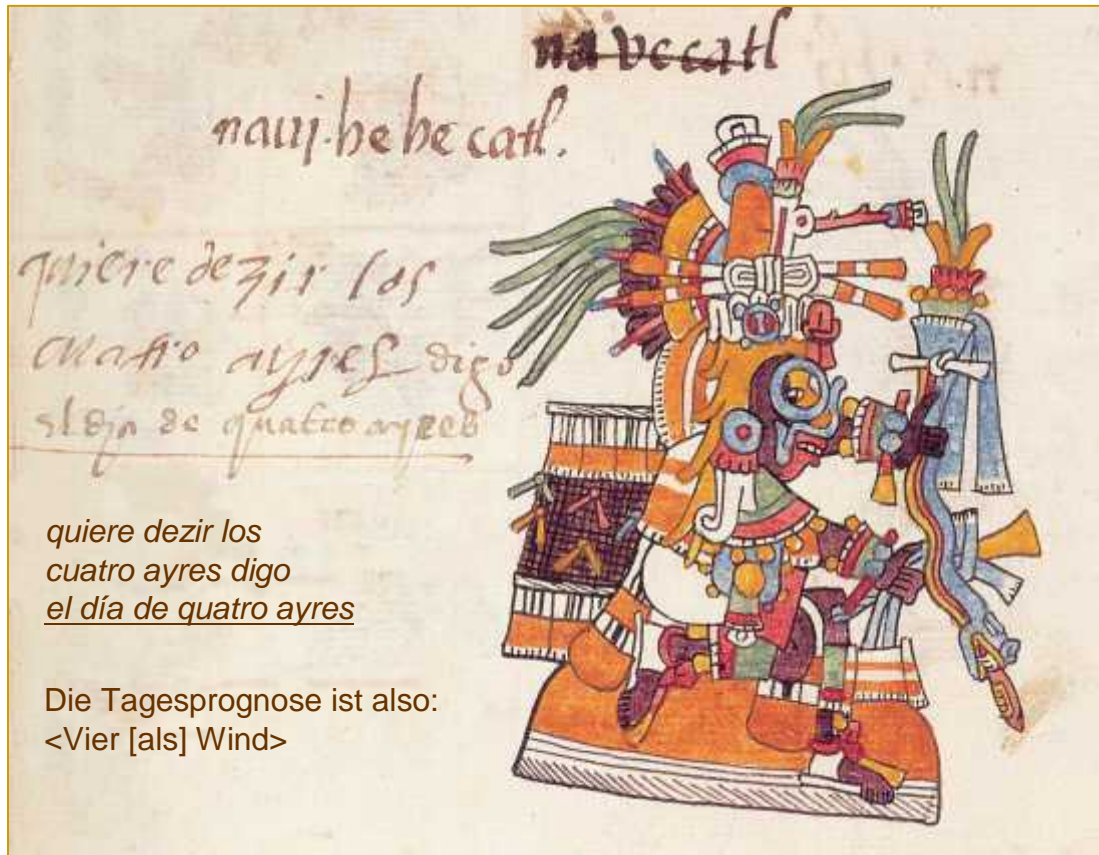 navecatl
naui.hehecatl.
quiere dezir los
cuatro ayres digo
el dia de quatro ayres
quiere dezir los
cuatro ayres digo
el día de quatro ayres
Die Tagesprognose ist also:
<Vier [als] Wind>